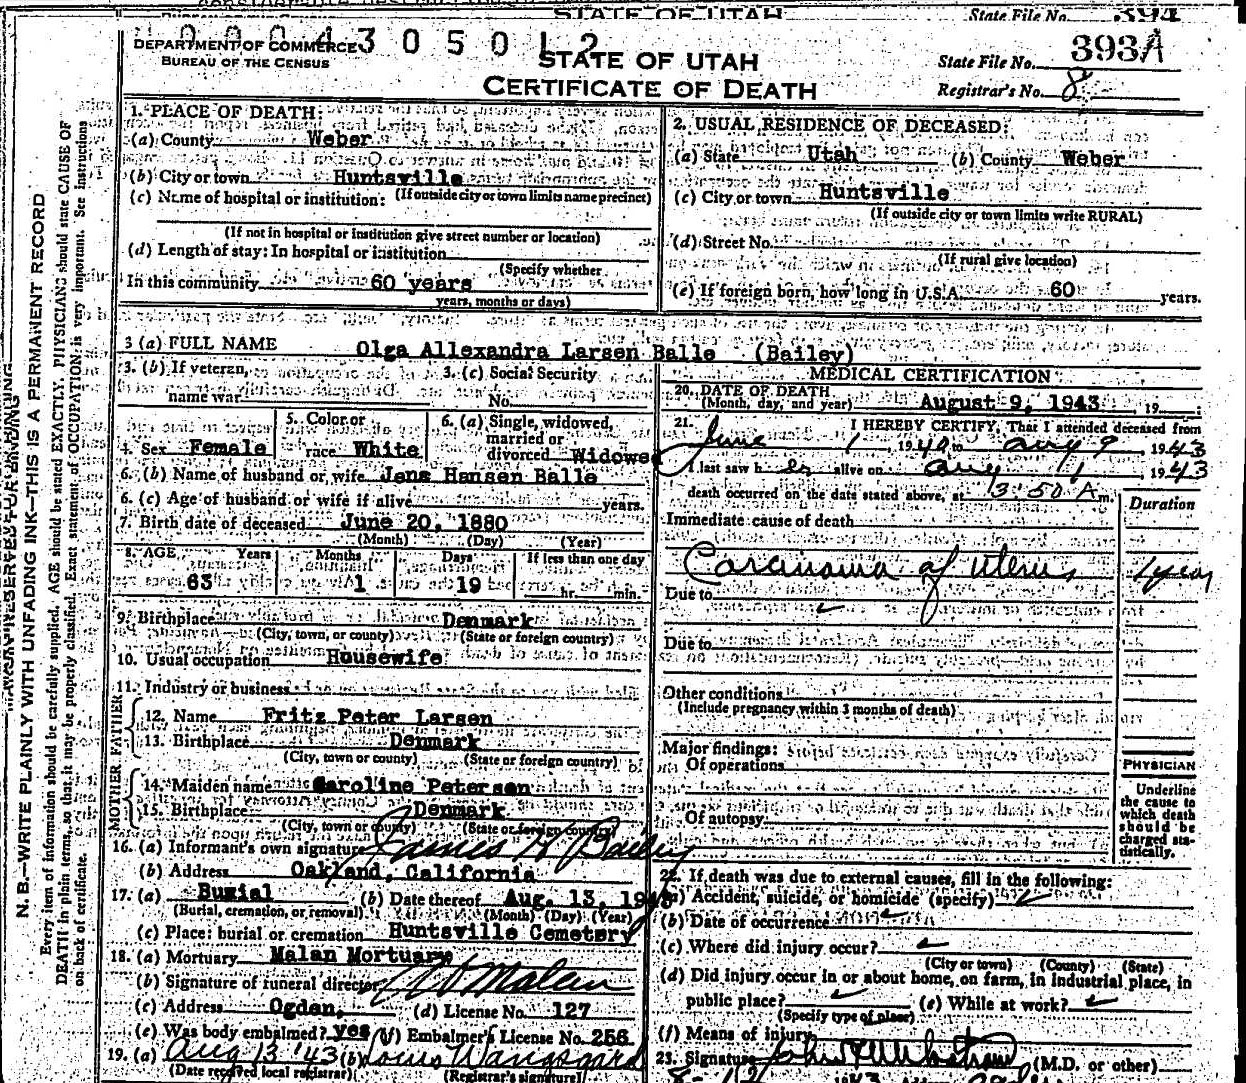 STATE OF UTAH
State File No. 394
0004305012
DEPARTMENT OF COMMERCE
BUREAU OF THE CENSUS
STATE OF UTAH
CERTIFICATE OF DEATH
State File No. 393A
Registrar's No. 8
N. B.—WRITE PLAINLY WITH UNFADING INK—THIS IS A PERMANENT RECORD
Every item of information should be carefully supplied. AGE should be stated EXACTLY. PHYSICIANS should state CAUSE OF
DEATH in plain terms, so that it may be properly classified. Exact statement of OCCUPATION is very important. See instructions
on back of certificate.
1. PLACE OF DEATH:
(a) County Weber
(b) City or town Huntsville
(If outside city or town limits name precinct)
(c) Name of hospital or institution:
(If not in hospital or institution give street number or location)
(d) Length of stay: In hospital or institution
(Specify whether
In this community 60 years
years, months or days)
2. USUAL RESIDENCE OF DECEASED:
(a) State Utah (b) County Weber
(c) City or town Huntsville
(If outside city or town limits write RURAL)
(d) Street No.
(If rural give location)
(e) If foreign born, how long in U.S.A. 60 years.
3 (a) FULL NAME Olga Allexandra Larsen Balle (Bailey)
3. (b) If veteran, name war
3. (c) Social Security No.
4. Sex Female
5. Color or race White
6. (a) Single, widowed, married or divorced Widowed
6. (b) Name of husband or wife Jens Hansen Balle
6. (c) Age of husband or wife if alive years.
7. Birth date of deceased June 20, 1880
(Month) (Day) (Year)
8. AGE Years Months Days If less than one day
63 1 19 hr. min.
9. Birthplace Denmark
(City, town, or county) (State or foreign country)
10. Usual occupation Housewife
11. Industry or business
FATHER
12. Name Fritz Peter Larsen
13. Birthplace Denmark
(City, town or county) (State or foreign country)
MOTHER
14. Maiden name Caroline Petersen
15. Birthplace Denmark
(City, town or county) (State or foreign country)
16. (a) Informant's own signature James H Bailey
(b) Address Oakland, California
17. (a) Burial (b) Date thereof Aug. 13, 1943
(Burial, cremation, or removal) (Month) (Day) (Year)
(c) Place: burial or cremation Huntsville Cemetery
18. (a) Mortuary Malan Mortuary
(b) Signature of funeral director Malan
(c) Address Ogden, (d) License No. 127
(e) Was body embalmed? yes (f) Embalmer's License No. 256
19. (a) Aug 13 '43 (b) Louis Wangsgard
(Date received local registrar) (Registrar's signature)
MEDICAL CERTIFICATION
20. DATE OF DEATH
(Month, day, and year) August 9, 1943, 19
21. I HEREBY CERTIFY, That I attended deceased from
June 1, 1940 to Aug 9, 1943
I last saw her alive on Aug 1, 1943
death occurred on the date stated above, at 3:50 A m.
Duration
Immediate cause of death
Carcinoma of uterus 1 year
Due to
Due to
Other conditions
(Include pregnancy within 3 months of death)
Major findings:
Of operations
Of autopsy
PHYSICIAN
Underline
the cause to
which death
should be
charged sta-
tistically.
22. If death was due to external causes, fill in the following:
(a) Accident, suicide, or homicide (specify)
(b) Date of occurrence
(c) Where did injury occur?
(City or town) (County) (State)
(d) Did injury occur in or about home, on farm, in industrial place, in
public place? (e) While at work?
(Specify type of place)
(f) Means of injury
23. Signature (M.D. or other)